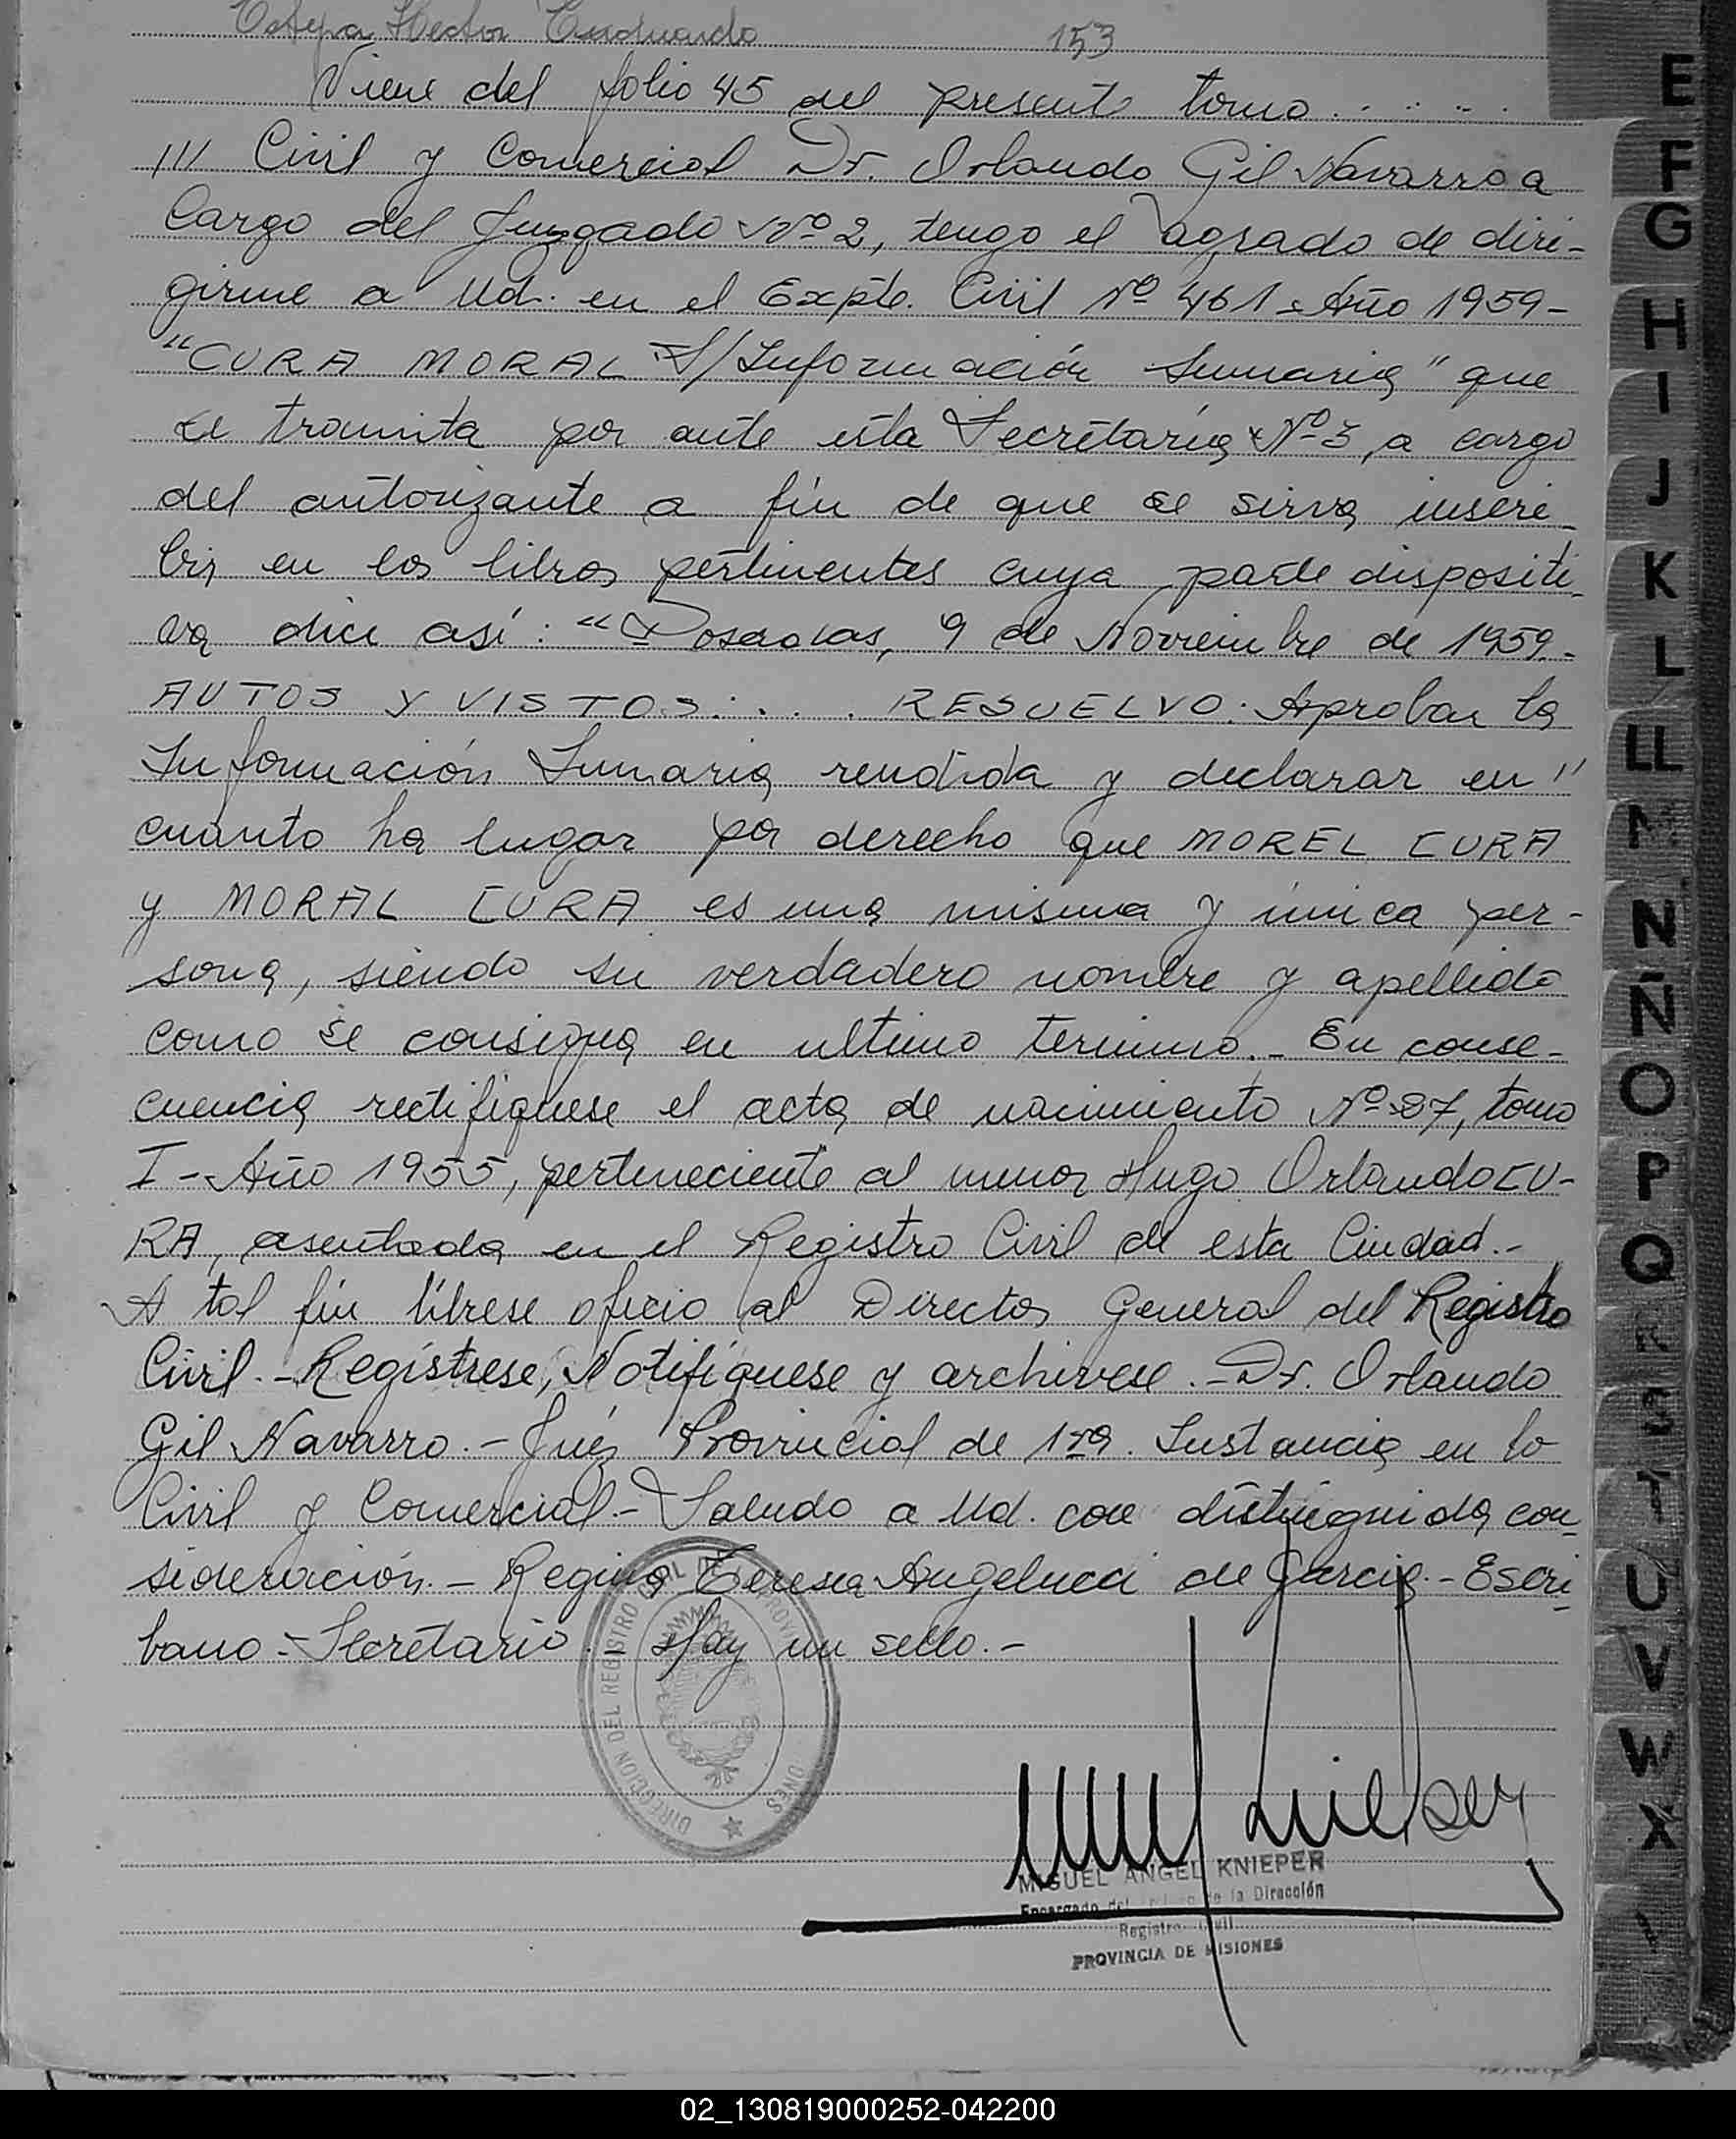 Hector Eduardo 153
Viene del folio 45 del presente tomo . . . . .
/// Civil y Comercial Dr. Orlando Gil Navarro a
Cargo del Juzgado Nº 2, tengo el agrado de diri-
girme a Ud. en el Expte. Civil Nº 461 - Año 1959 -
"CURA MORAL S/Información Sumaria" que
se tramita por ante esta Secretaría Nº 3, a cargo
del autorizante a fin de que se sirva inscri-
bir en los libros pertinentes cuya parte dispositi-
va dice así: "Posadas, 9 de Noviembre de 1959.-
AUTOS Y VISTOS: . . . RESUELVO: Aprobar la
Información Sumaria rendida y declarar en "
cuanto ha lugar por derecho que MOREL CURA
y MORAL CURA es una misma y única per-
sona, siendo su verdadero nombre y apellido
como se consigna en ultimo termino.- En conse-
cuencia rectifíquese el acta de nacimiento Nº 27, tomo
I - Año 1955, perteneciente al menor Hugo Orlando CU-
RA, asentada en el Registro Civil de esta Ciudad.-
A tal fin líbrese oficio al Director General del Registro
Civil.- Regístrese, Notifíquese y archivese.- Dr. Orlando
Gil Navarro.- Juéz Provincial de 1ra. Instancia en lo
Civil y Comercial.- Saludo a Ud. con distinguida con-
sideración.- Regina Teresa Angelucci de Garcia.- Escri-
bano - Secretario.- Hay un sello.-
DIRECCION DEL REGISTRO CIVIL
MIGUEL ANGEL KNIEPER
Encargado del de la Dirección
Registro Civil
PROVINCIA DE MISIONES
E
F
G
H
I
J
K
L
LL
M
N
Ñ
O
P
Q
R
S
T
U
V
W
X
02_130819000252-042200